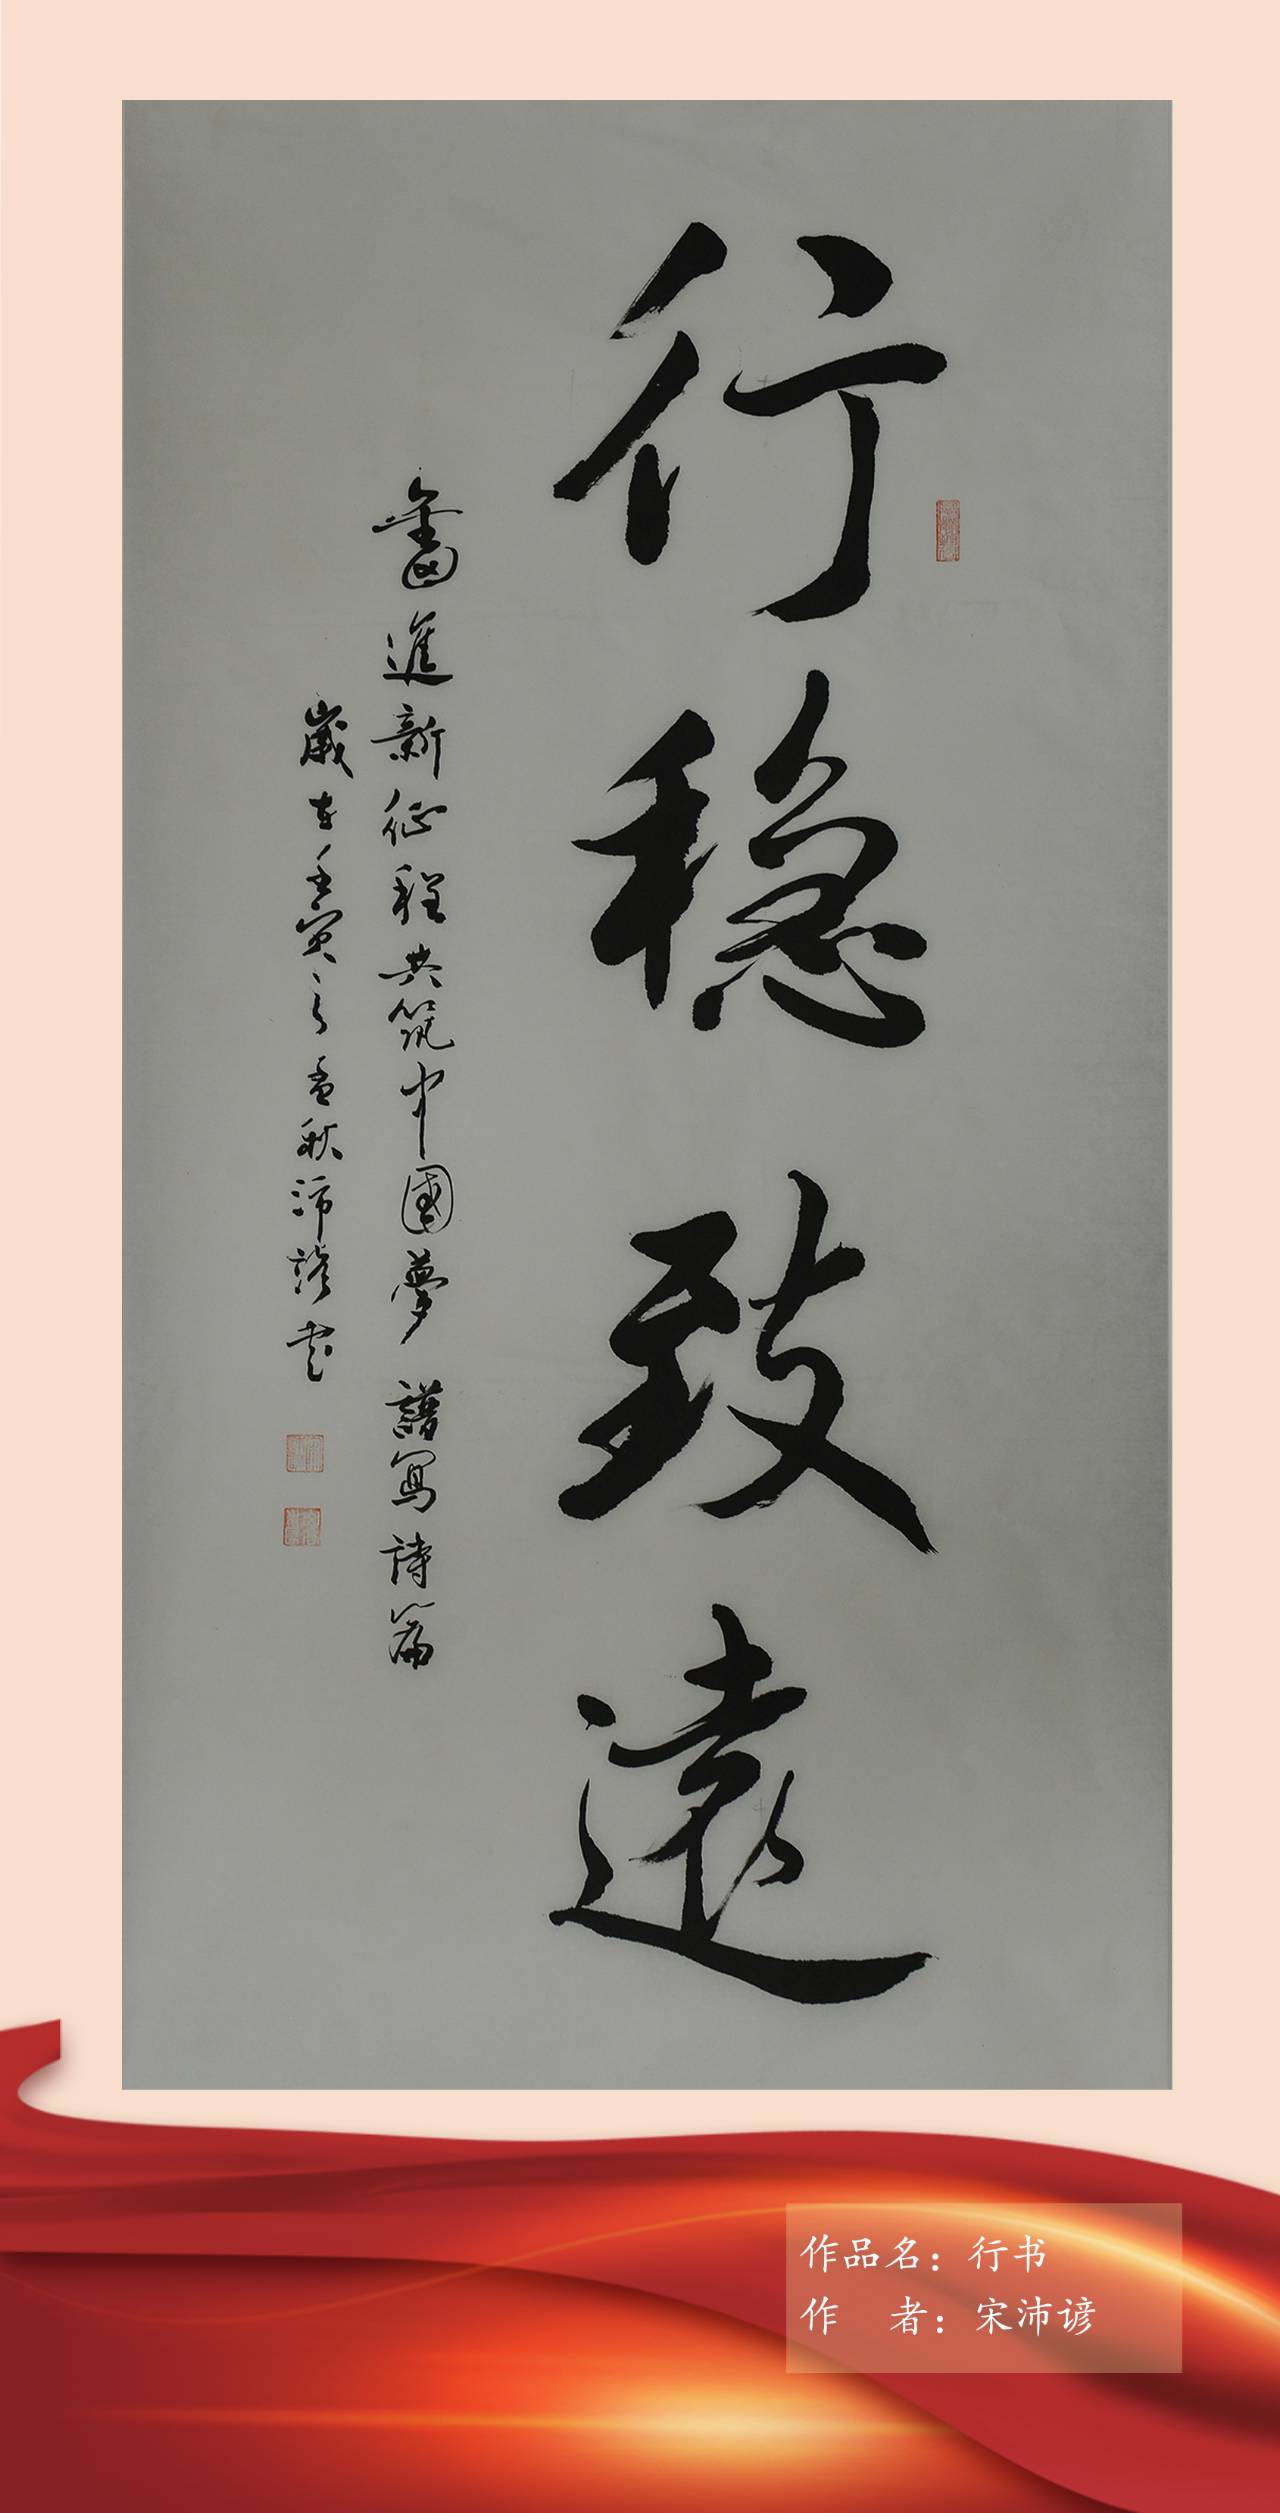 行稳致遠
奮進新征程共筑中國夢 譜寫詩篇
歲在壬寅之孟秋沛諺書
作品名：行书
作　者：宋沛谚